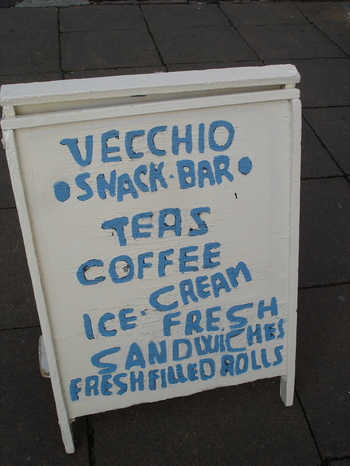 VECCHIO
•SNACK•BAR•
TEAS
COFFEE
ICE•CREAM
FRESH
SANDWICHES
FRESH FILLED ROLLS